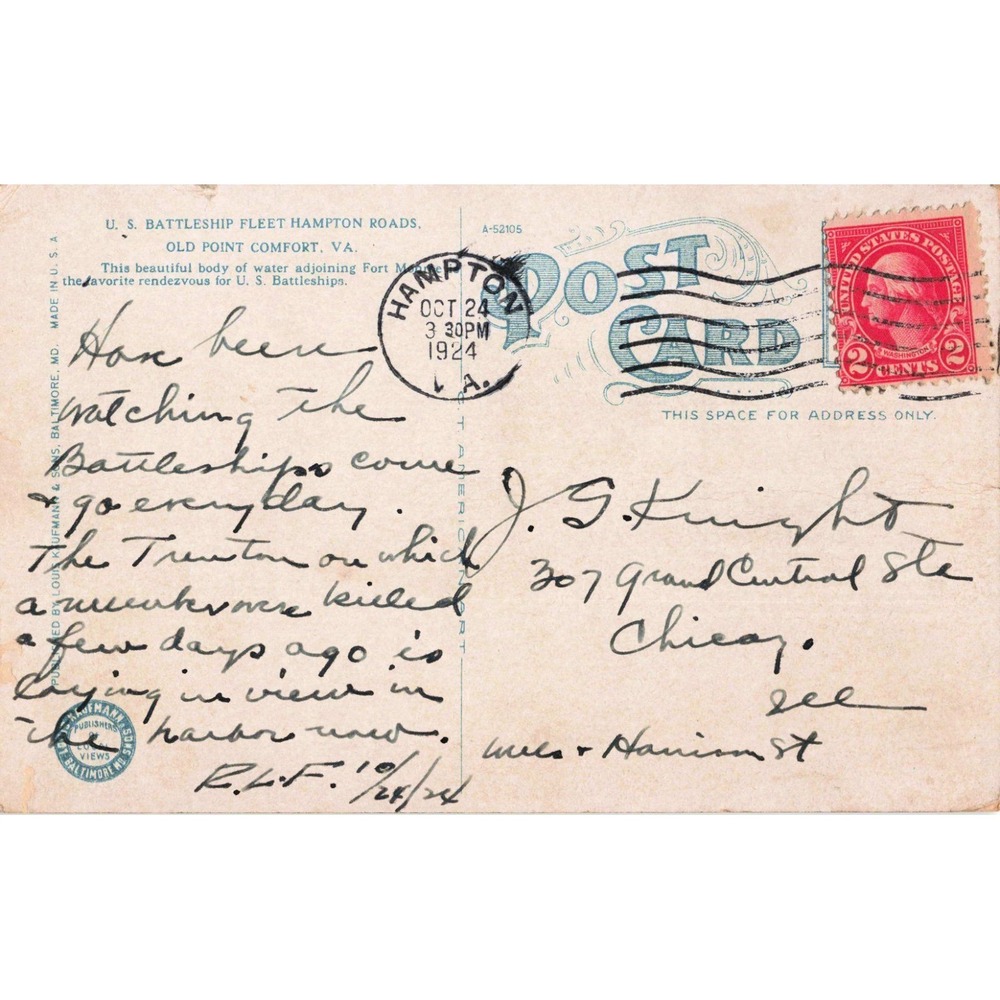 U. S. BATTLESHIP FLEET HAMPTON ROADS,
OLD POINT COMFORT, VA.
This beautiful body of water adjoining Fort
the favorite rendezvous for U. S. Battleships.
Have been
watching the
Battleships come
& go everyday.
The Trenton on which
a killed
a few days ago is
laying in view in
the harbor now.
R.L.F. 10/24/24
PUBLISHED BY LOUIS KAUFMANN & SONS, BALTIMORE, MD. MADE IN U. S. A
LOUIS KAUFMANN & SONS
BALTIMORE MD
PUBLISHERS
LOCAL
VIEWS
A-52105
POST
CARD
HAMPTON
OCT 24
3 30PM
1924
VA.
UNITED STATES POSTAGE
WASHINGTON
2 CENTS 2
THIS SPACE FOR ADDRESS ONLY.
J. G. Knight
307 Grand Central Sta
Chicago.
Ill
& Harrison St